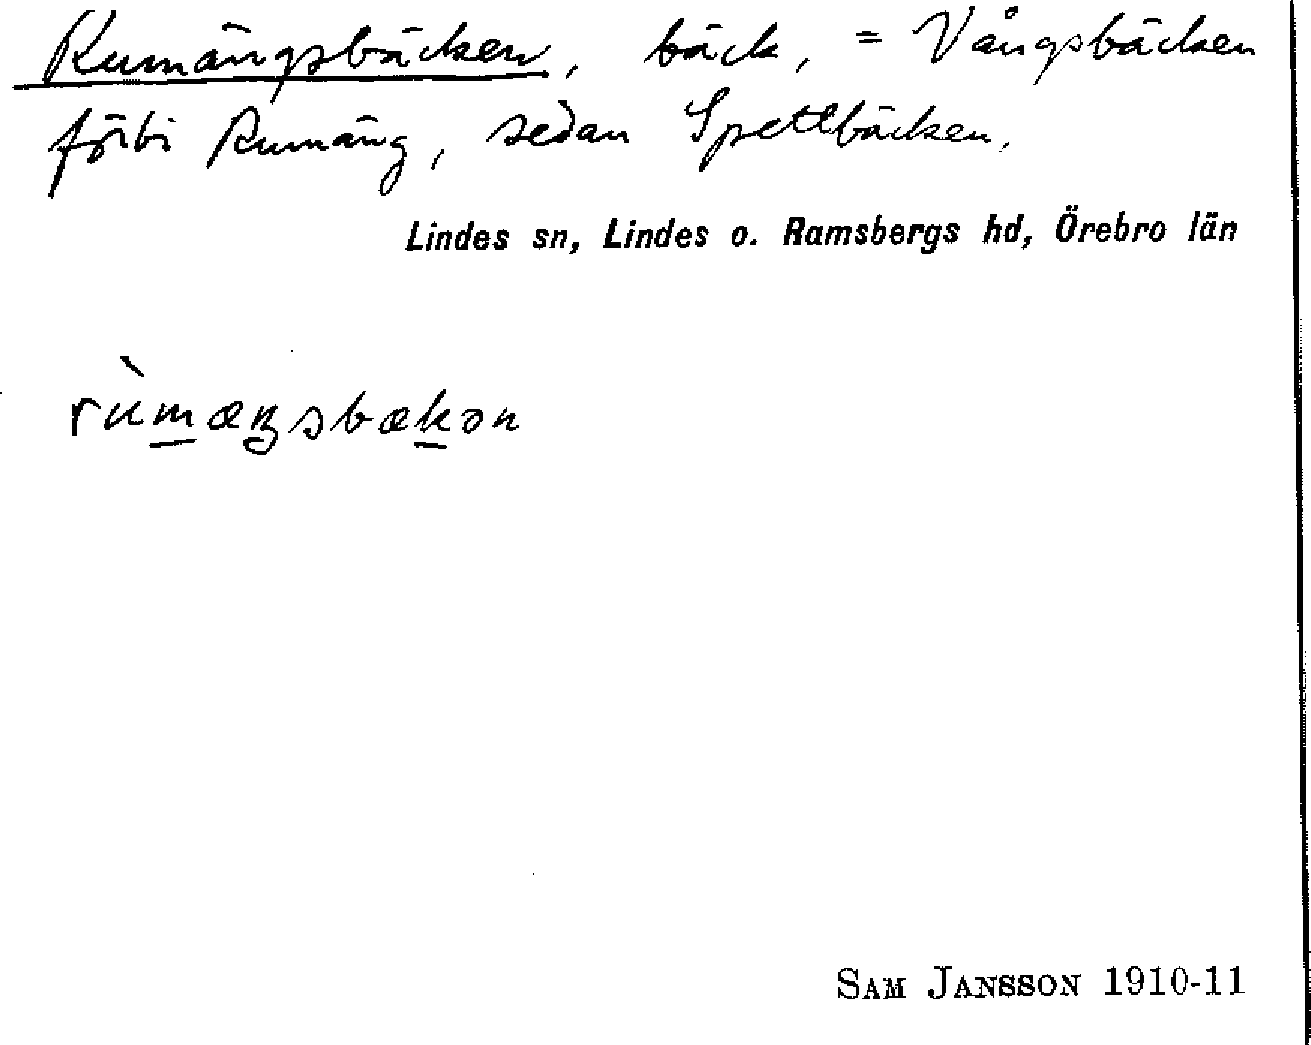 Rumängsbäcken, bäck, = Vångsbäcken
förbi Rumäng, sedan Spettbäcken.
Lindes sn, Lindes o. Ramsbergs hd, Örebro län
rùmæŋsbækən
SAM JANSSON 1910-11